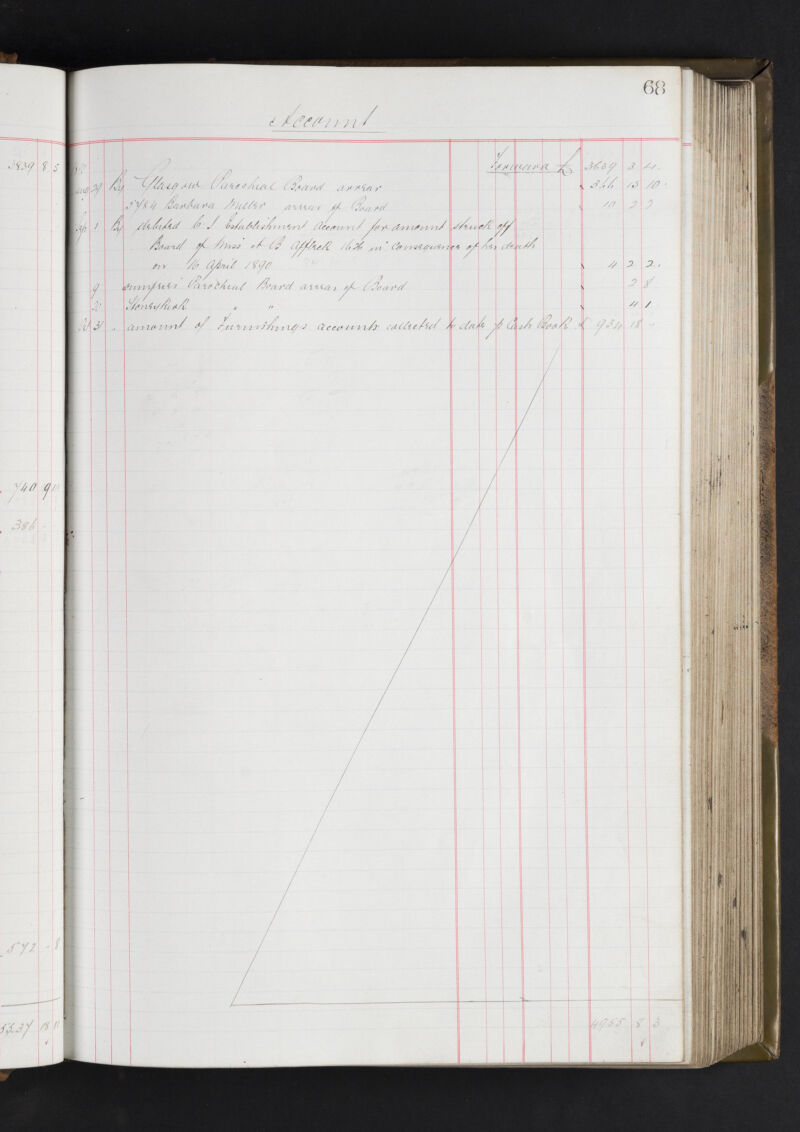 68
Account
Forward £ 3639 3 4
29 By Glasgow Parochial Board arrear 366 15 10
5784 Barbara Muller arrear of Board 10 2 2
Sep 1 By debited C. I. Establishment account for amount struck off
Board of Miss et B Affleck in consequence of her death
on 16 April 1890 4 2 2
9 Parochial Board arrear of Board 2 8
Stoneykirk " " 4 1
Oct 31 " amount of Furnishings accounts collected to date p Cash Book £ 934 18 -
4955 8 3
3839 8 5
740 9
386 -
572 - 8
5537 18 11